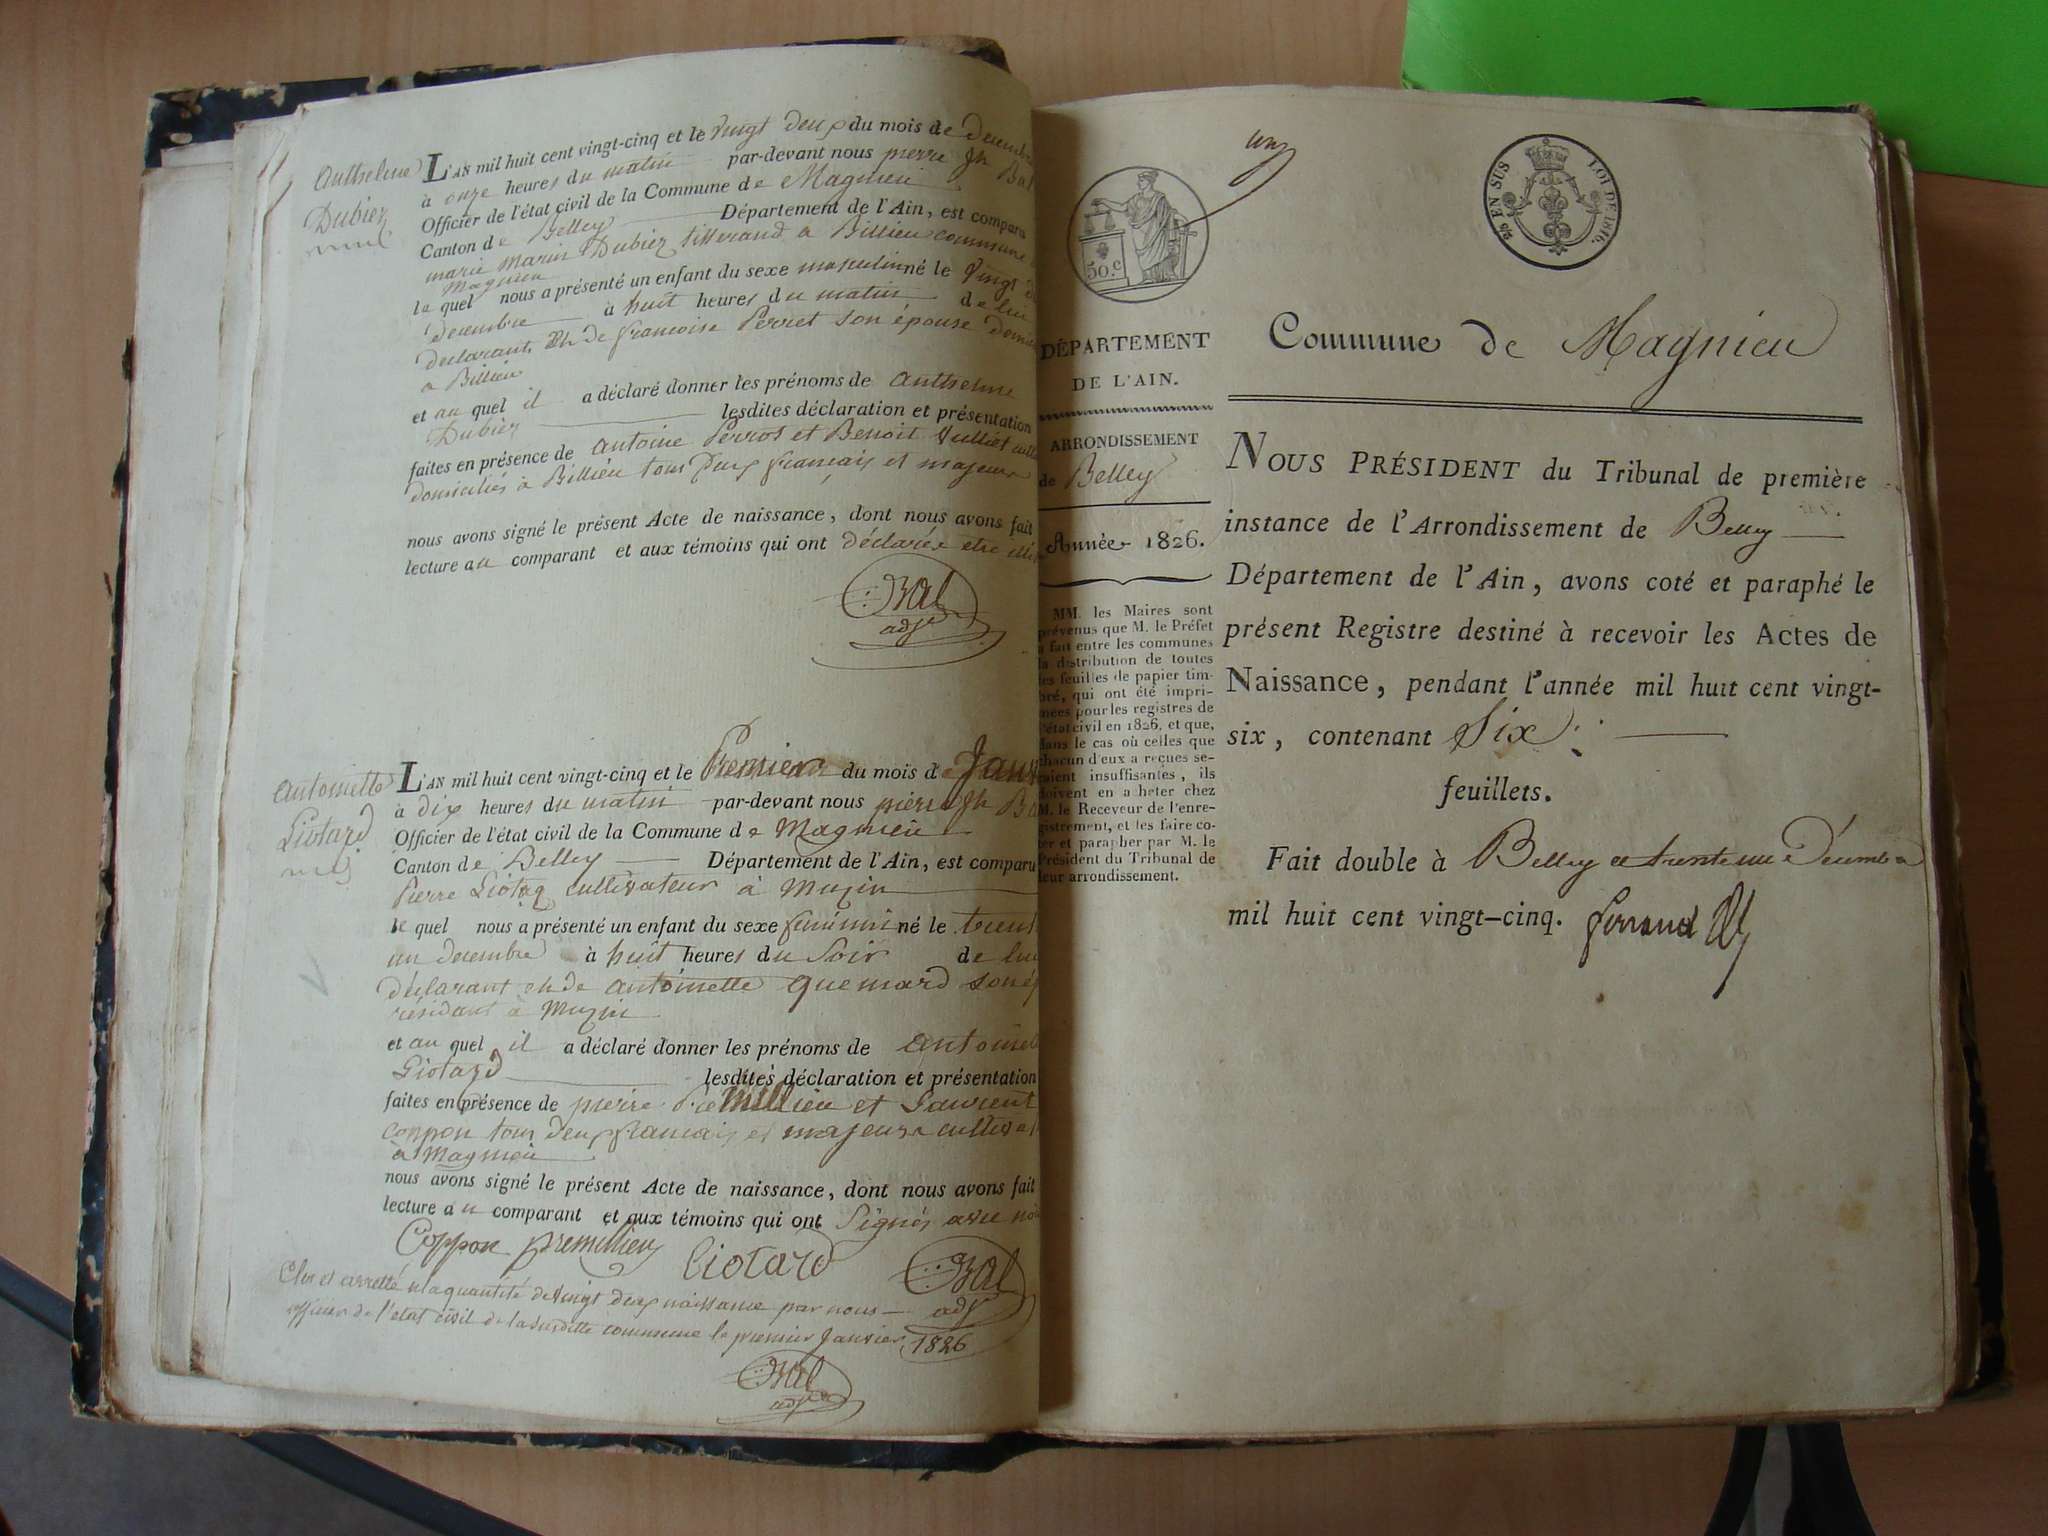 Anthelme
Dubiez
L'AN mil huit cent vingt-cinq et le vingt deux du mois de decembre
à onze heures du matin par-devant nous pierre Jh Bal
Officier de l'état civil de la Commune de Magnieu
Canton de Belley Département de l'Ain, est comparu
marie marin Dubiez tisserand a Billieu commune
Magnieu
le quel nous a présenté un enfant du sexe masculin né le vingt
decembre à huit heures du matin de lui
declarant & de francoise Perret son épouse
a Billieu
et au quel il a déclaré donner les prénoms de anthelme
Dubiez lesdites déclaration et présentation
faites en présence de antoine Perrot et Benoit Vulliet
domiciliés à Billieu tous deux francais et majeurs
nous avons signé le présent Acte de naissance, dont nous avons fait
lecture au comparant et aux témoins qui ont déclarés etre
Bal
adjt
Antoinette
Liotard
L'AN mil huit cent vingt-cinq et le Premier du mois de Janv
à dix heures du matin par-devant nous pierre Jh Ba
Officier de l'état civil de la Commune de Magnieu
Canton de Belley Département de l'Ain, est comparu
Pierre Liotard cultivateur à Muzin
le quel nous a présenté un enfant du sexe féminin né le trent
un decembre à huit heures du Soir de lui
déclarant et de antoinette quemard son ép
résidant à Muzin
et au quel il a déclaré donner les prénoms de antoinet
Liotard lesdites déclaration et présentation
faites en présence de pierre Premillieu et Laurent
coppon tous deux francais et majeurs cultivat
à Magnieu
nous avons signé le présent Acte de naissance, dont nous avons fait
lecture au comparant et aux témoins qui ont Signés avec nou
Coppon premillieu Liotard Bal
adjt
Clos et arretté a la quantité de vingt deux naissance par nous
officier de l'etat civil de la susditte commune le premier Janvier 1826
Bal
adjt
un
50.c
EN SUS LOI DE 1816.
DÉPARTEMENT
DE L'AIN.
ARRONDISSEMENT
de Belley
Année 1826.
MM. les Maires sont
prévenus que M. le Préfet
a fait entre les communes
la distribution de toutes
les feuilles de papier tim-
bré, qui ont été impri-
mées pour les registres de
l'état civil en 1826, et que,
dans le cas où celles que
chacun d'eux a reçues se-
raient insuffisantes, ils
doivent en acheter chez
M. le Receveur de l'enre-
gistrement, et les faire co-
ter et parapher par M. le
Président du Tribunal de
leur arrondissement.
Commune de Magnieu
NOUS PRÉSIDENT du Tribunal de première
instance de l'Arrondissement de Belley
Département de l'Ain, avons coté et paraphé le
présent Registre destiné à recevoir les Actes de
Naissance, pendant l'année mil huit cent vingt-
six, contenant Six
feuillets.
Fait double à Belley ce trente un Décembre
mil huit cent vingt-cinq.